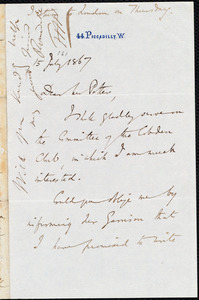 I return to London on Thursday.
44 PICCADILLY. W.
15 July 1867
Dear Mr Potter,
I shall gladly serve on
the Committee of the Cobden
Club, in which I am much
interested.
Could you oblige me by
informing Mr Garrison that
I have promised to write
Will you kindly